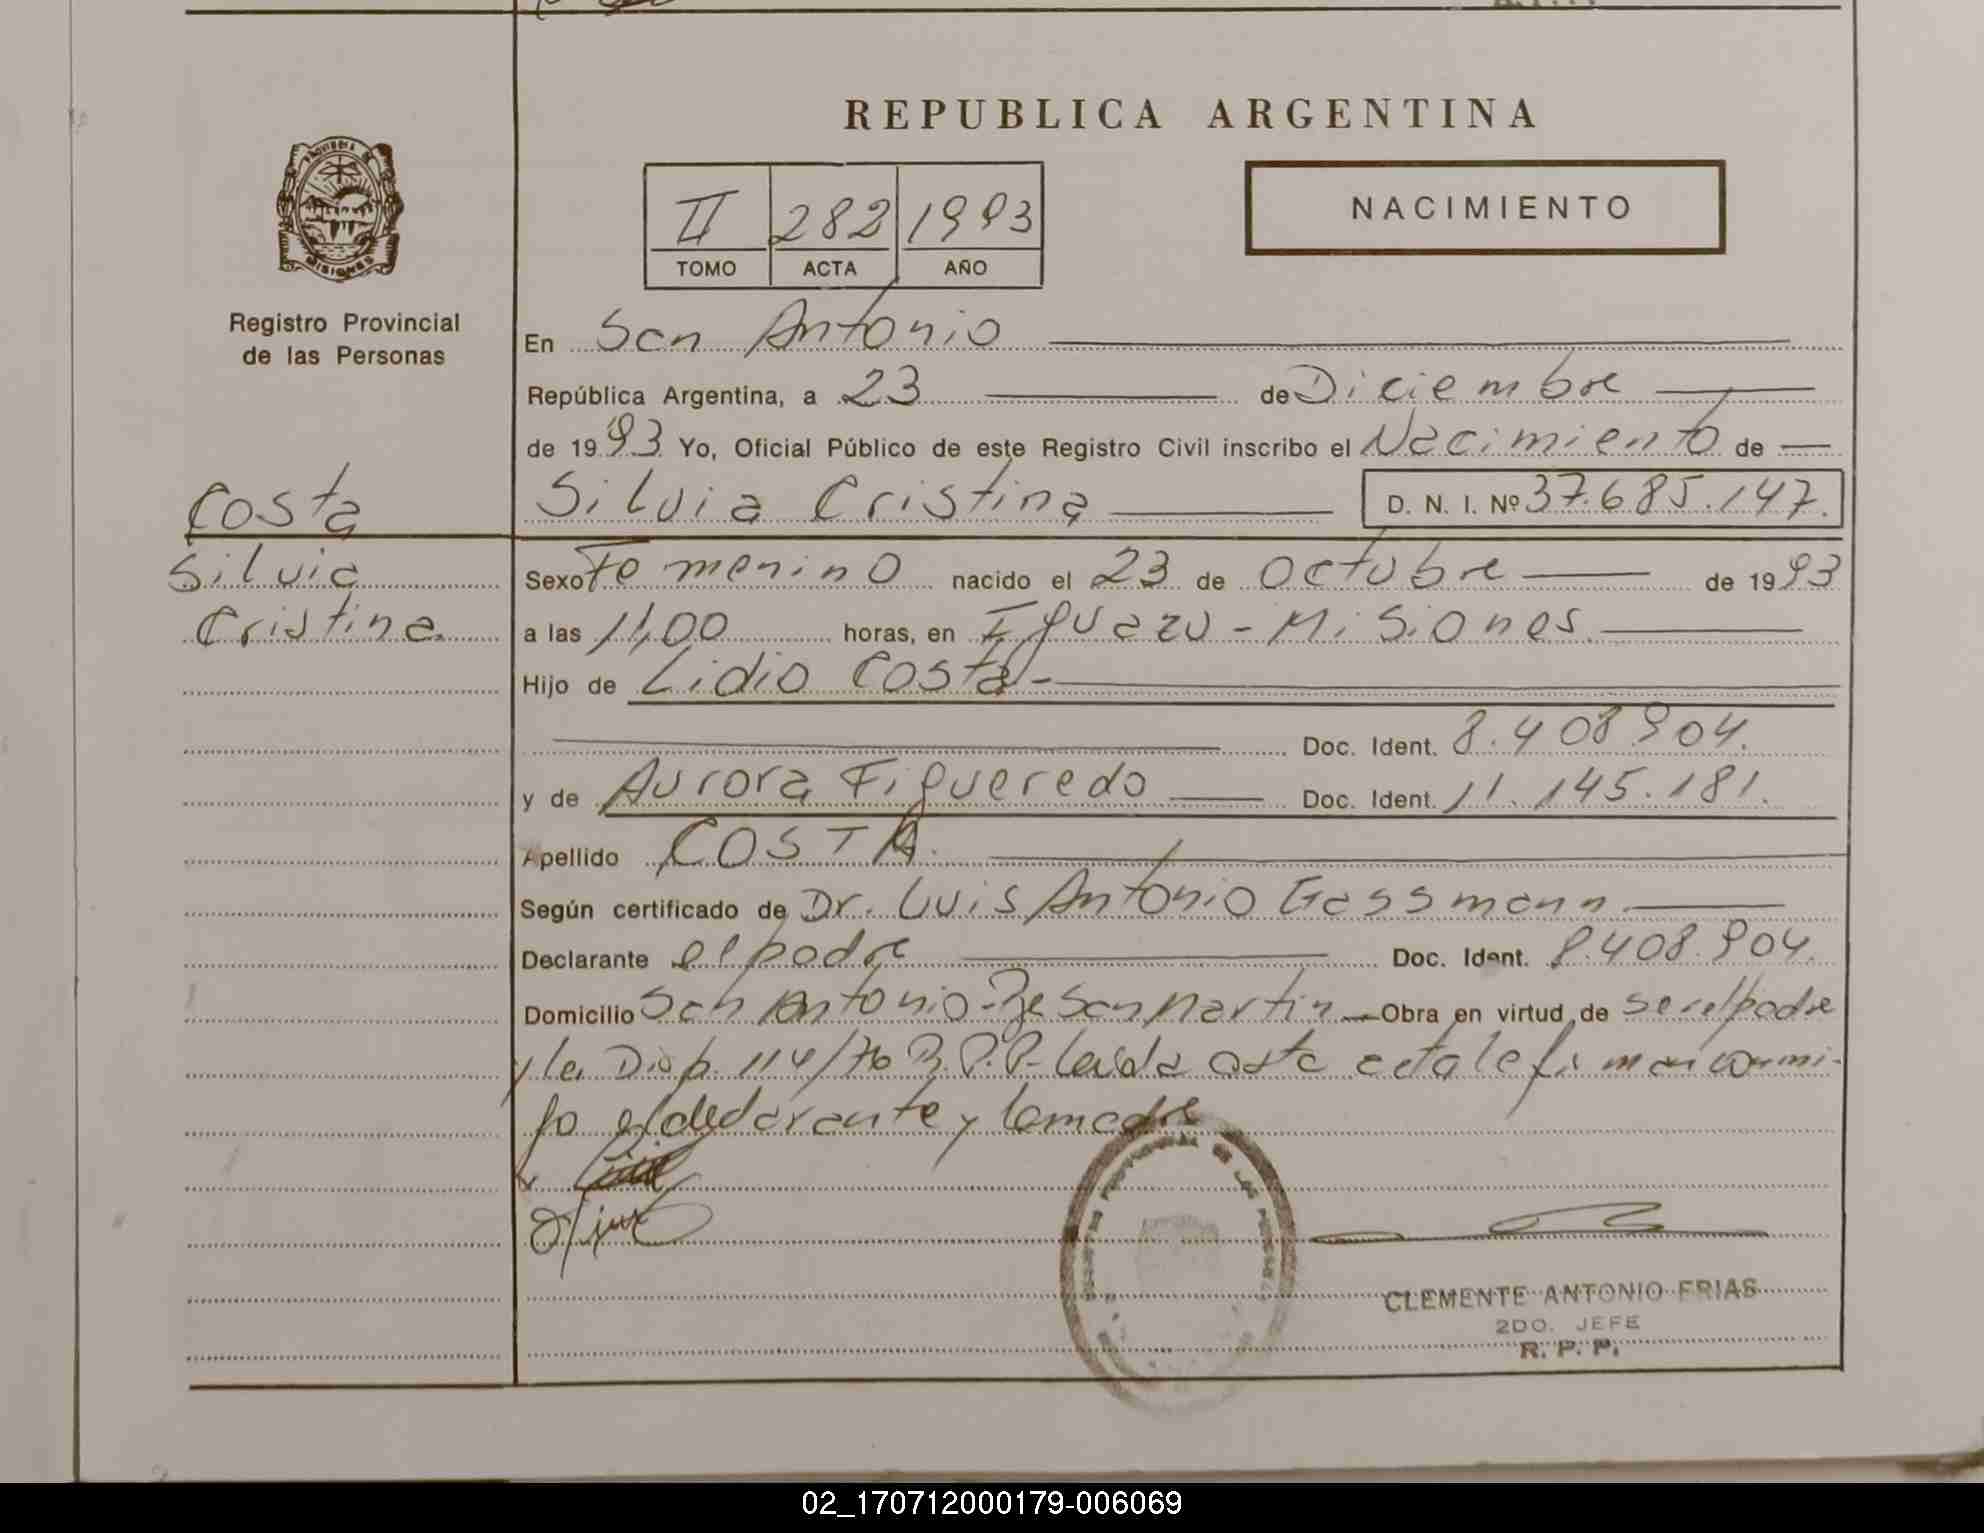 REPUBLICA ARGENTINA
PROVINCIA DE
MISIONES
Registro Provincial
de las Personas
II 282 1993
TOMO ACTA AÑO
NACIMIENTO
En San Antonio
República Argentina, a 23 de Diciembre
de 1993 Yo, Oficial Público de este Registro Civil inscribo el Nacimiento de
Costa
Silvia Cristina D. N. I. Nº 37.685.147.
Silvia
Cristina
Sexo Femenino nacido el 23 de Octubre de 1993
a las 11,00 horas, en Iguazu - Misiones
Hijo de Lidio Costa -
Doc. Ident. 8.408.904.
y de Aurora Figueredo Doc. Ident. 11.145.181.
Apellido COSTA.
Según certificado de Dr. Luis Antonio Gassmann
Declarante el padre Doc. Ident. 8.408.904.
Domicilio San Antonio - San Martin Obra en virtud de ser el padre
y la Disp. 114/76 R.P.P. Leida esta acta le firman conmi-
go el declarante y la madre
CLEMENTE ANTONIO FRIAS
2DO. JEFE
R. P. P.
02_170712000179-006069